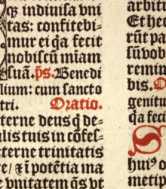 q̄s indiuisa vni
tas: confitebi-
mur ei qa fecit
nobiscū miam
suā. ps. Benedi
lium: cum sancto
tri. Oratio.
terne deus q de-
ulis tuis in cōfes-
terne trinitatis
re/ ⁊ ī potētia ma
e vnitatem q̄s vt
arbit
Et ho
rūt pa
sūvod
remio
bis.
genitu
qa feci
S
hnī
metip